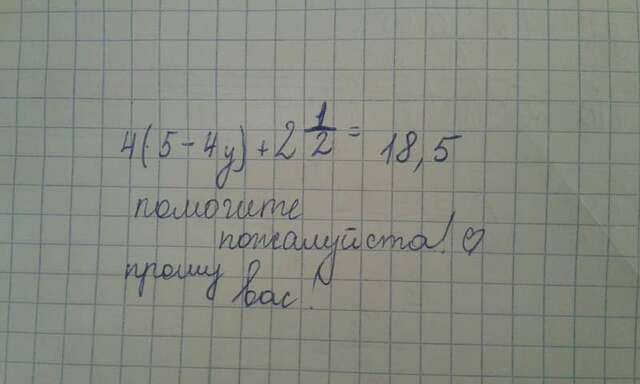 4(5-4y)+2 1/2 = 18,5
помогите
пожалуйста! ♡
прошу
вас!